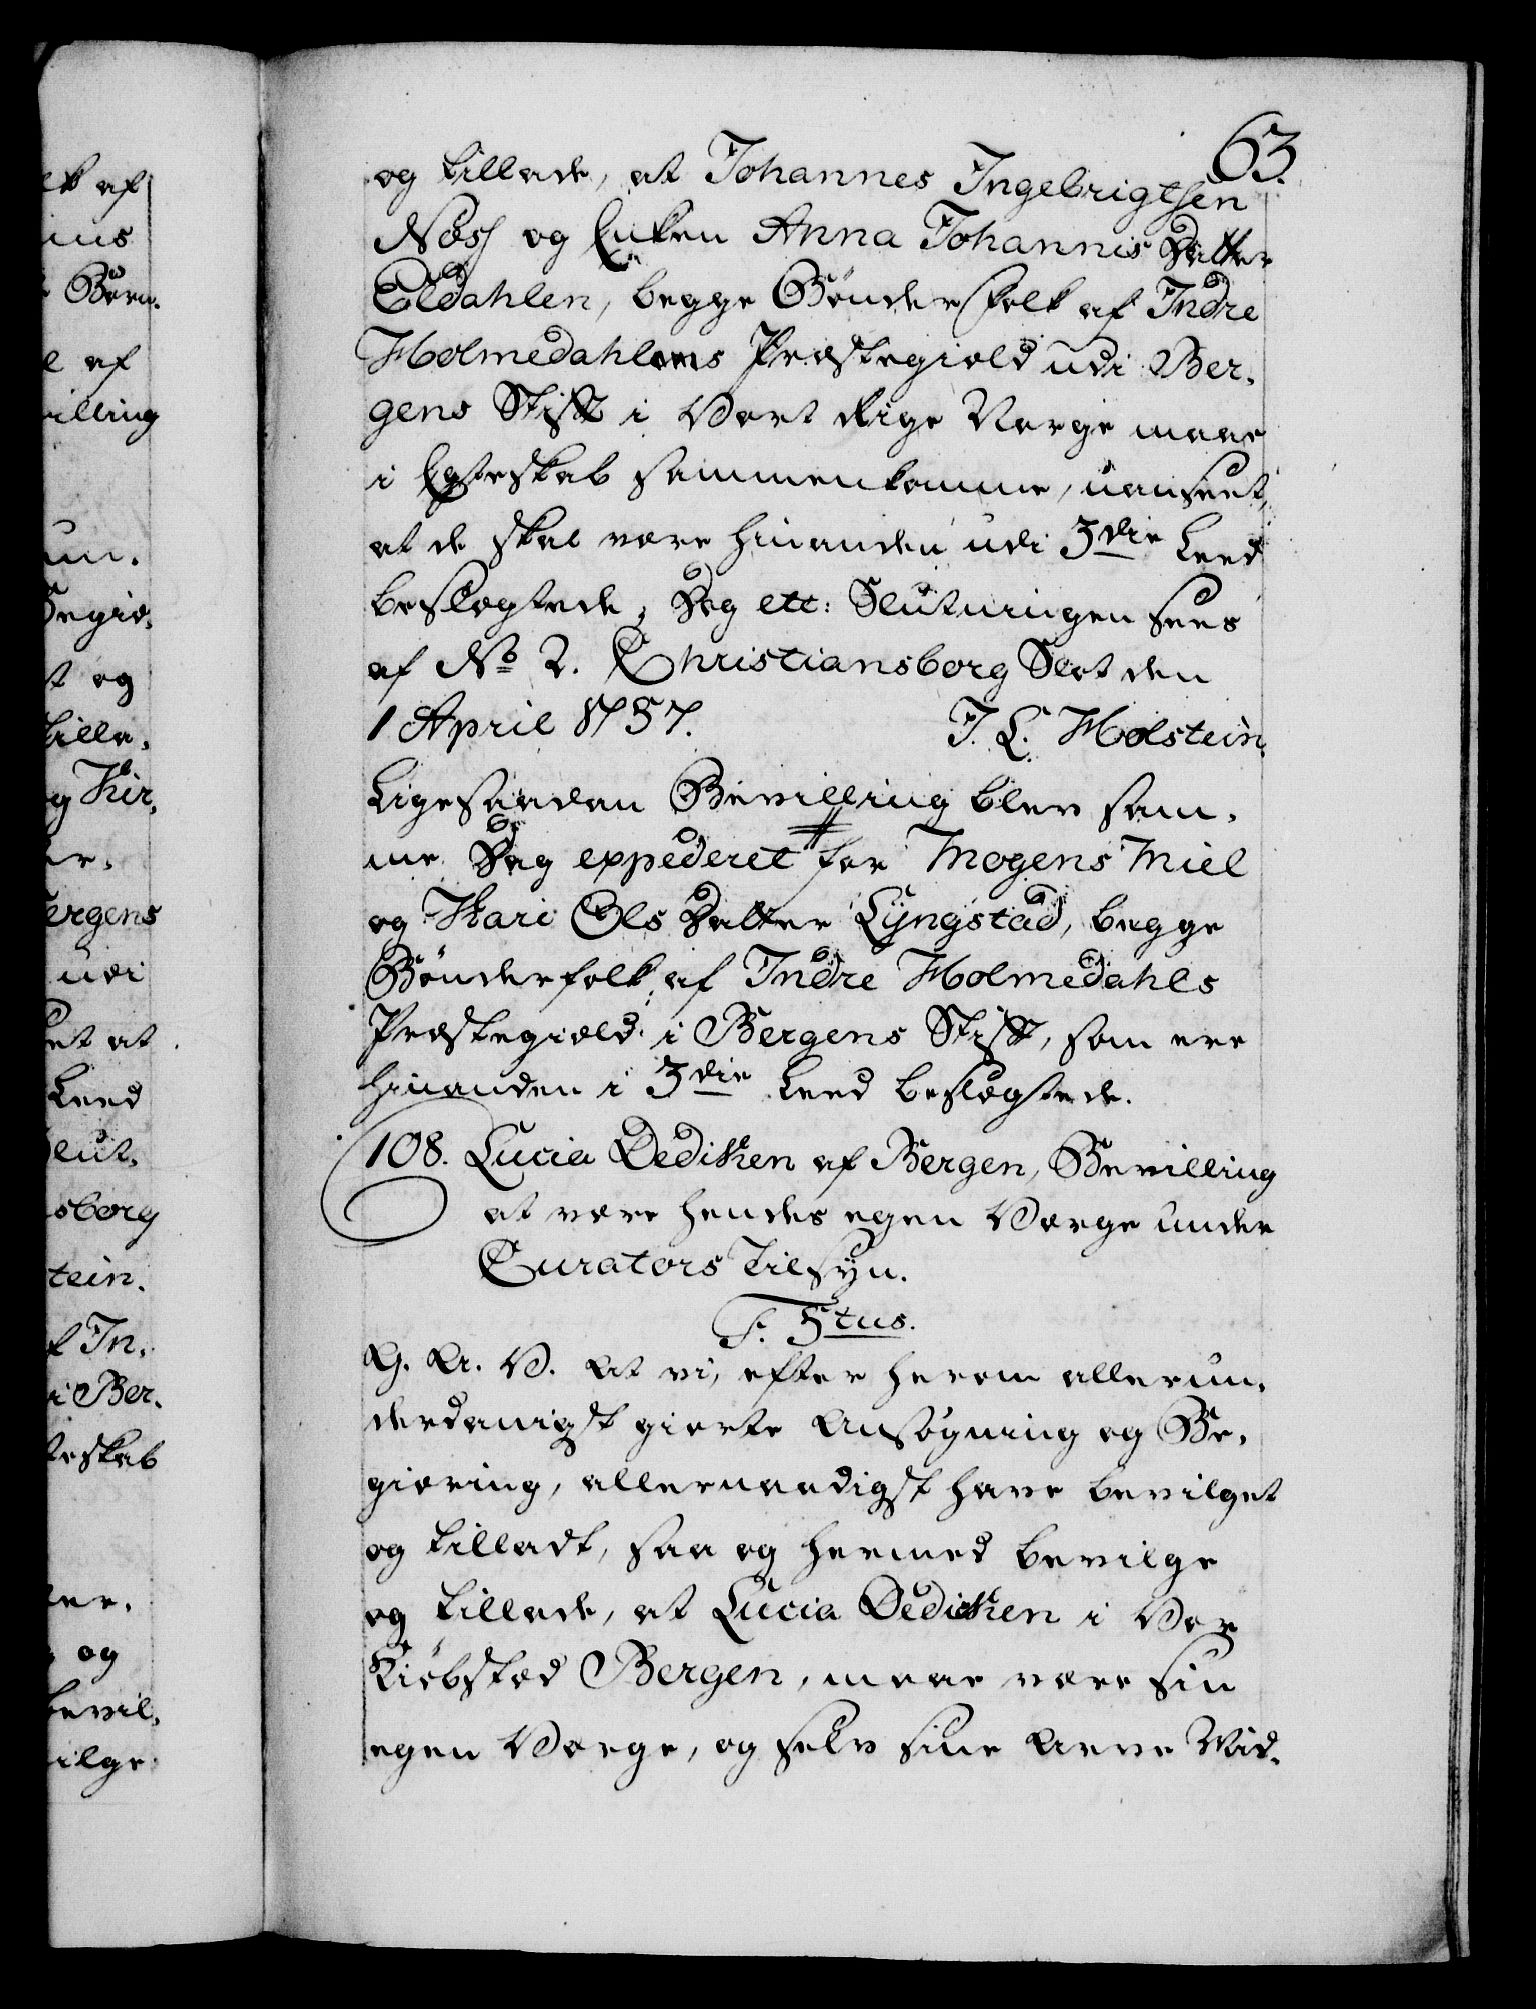 63.
og tillade, at Johannes Ingebrigtsen
Næss og Enken Anna Johannis Datter
Eldahlen, begge Bønderfolk af Indre
Holmedahlens Præstegield udi Ber-
gens Stift i Vort Rige Norge maae
i Egteskab sammenkomme, uanseet,
at de skal være hinanden udi 3die Leed
beslægtede; Dog etc: Slutningen sees
af No 2. Christiansborg Slot den
1 April 1757. J. L. Holstein.
Ligesaadan Bevilling blev sam-
me Dag expederet for Mogens Miel
og Kari Ols Datter Lyngstad, begge
Bønderfolk af Indre Holmedahls
Præstegield i Bergens Stift, som ere
hinanden i 3die Leed beslægtede.
108. Lucia Dediken af Bergen, Bevilling
at være hendes egen Værge under
Curators Tilsyn.
F. 5tus.
G. A. V. At vi, efter herom allerun-
derdanigst giorte Ansøgning og Be-
giering, allernaadigst have bevilget
og tilladt, saa og hermed bevilge
og tillade, at Lucia Dediken i Vor
Kiøbsted Bergen, maae være sin
egen Værge, og selv sine Arve Mid-
lk af
ins
Børn.
l af
villing
un.
Begiæ-
t og
tilla-
g Kir-
er.
ergens
udi
et at
Leed
Slut-
sborg
tein.
f In-
i Ber-
teskab
er.
og
bevil-
ilge